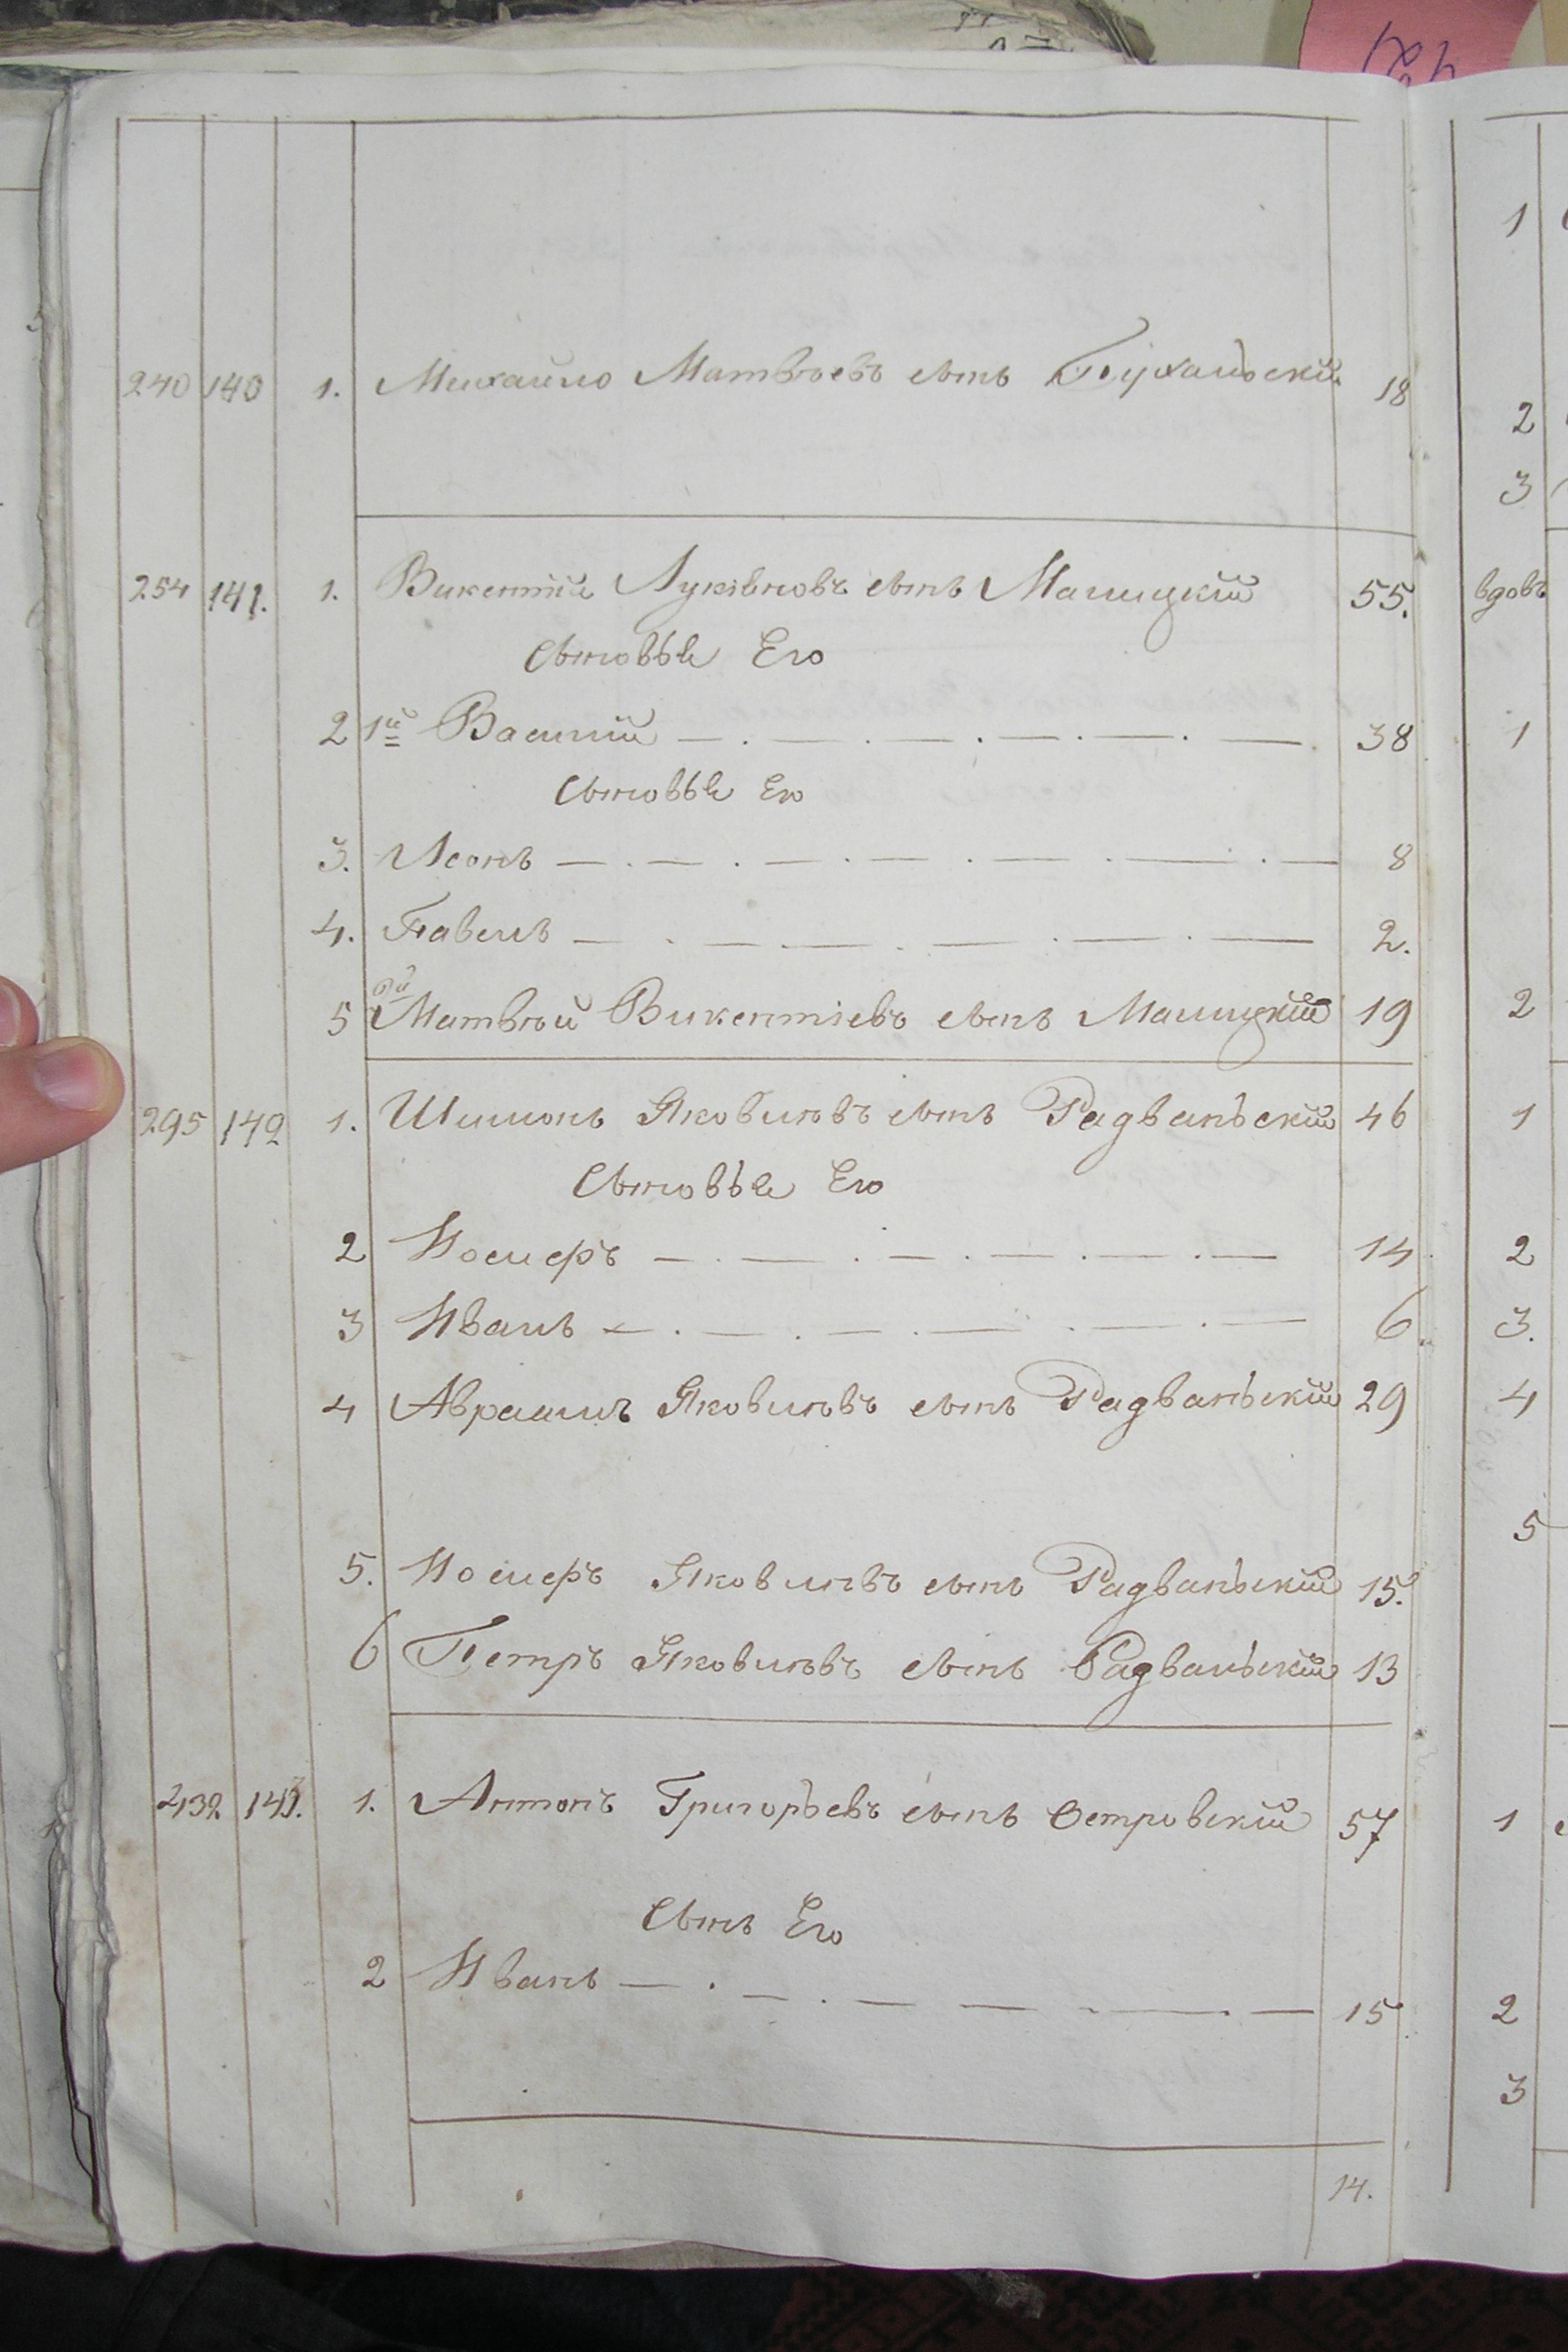 240 140 1. Михайло Матвѣевъ сынъ Пухальскій 18
254 141. 1. Викентій Лукяновъ сынъ Малицкій 55.
Сыновья Его
2 1й Василій 38
Сыновья Его
3. Леонъ 8
4. Павелъ 2.
5 2й Матвѣй Викентіевъ сынъ Малицкій 19
295 142 1. Шимонъ Яковлевъ сынъ Радваньскій 46
Сыновья Его
2 Иосифъ 14
3 Иванъ 6
4 Абрамъ Яковлевъ сынъ Радваньскій 29
5. Иосифъ Яковлевъ сынъ Радваньскій 15.
6 Петръ Яковлевъ сынъ Радваньскій 13
232 143. 1. Антонъ Григорьевъ сынъ Островскій 57
Сынъ Его
2 Иванъ 15
14.
1
2
3
вдовъ
1
2
1
2
3.
4
5
1
2
3